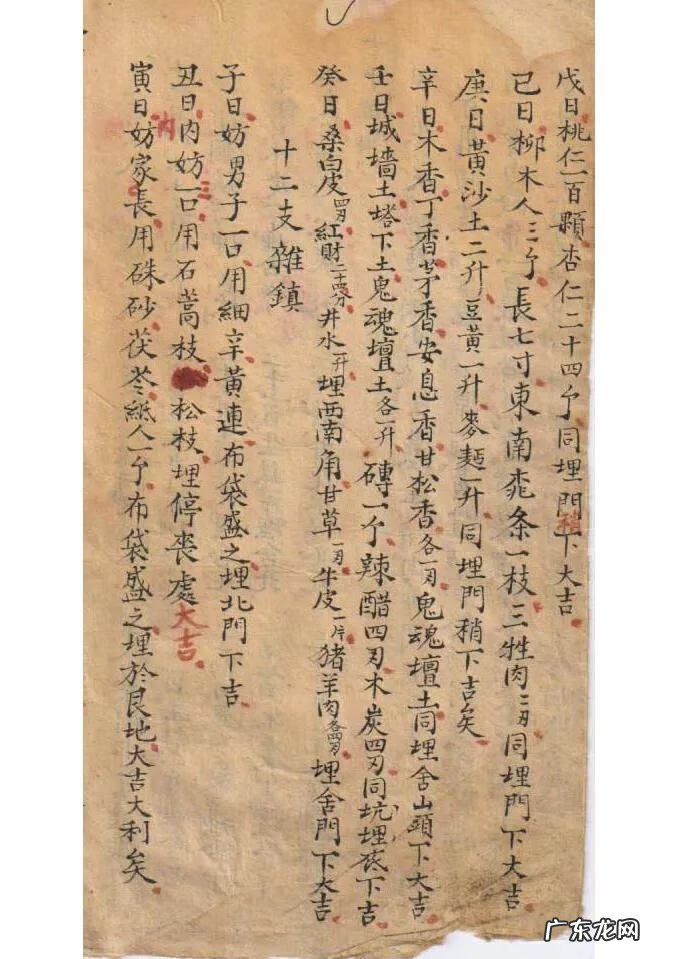 戊日桃仁一百顆杏仁二十四个同埋門稍下大吉
己日柳木人三个長七寸東南桃条一枝三牲肉二刄同埋門下大吉
庚日黃沙土二升豆黃一升麥麵一升同埋門稍下吉矣
辛日木香丁香茅香安息香甘松香各一刄鬼魂壇土同埋舍山頭下大吉
壬日城墻土塔下土鬼魂壇土各一升磚一个辣醋四刄木炭四刄同坑埋下吉
癸日桑白皮四刄紅財二十四分井水一升埋西南角甘草一刄牛皮一片猪羊肉各四刄埋舍門下大吉
十二支雜鎮
子日妨男子一口用細辛黃連布袋盛之埋北門下吉
丑日内妨三口用石蒿枝松枝埋停喪處大吉
内
寅日妨家長用硃砂茯苓紙人一个布袋盛之埋於艮地大吉大利矣
广东龙网